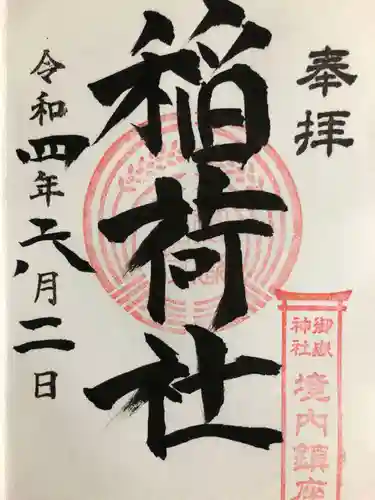 奉拝
稲荷社
令和四年六月二日
御嶽
神社
境内鎮座